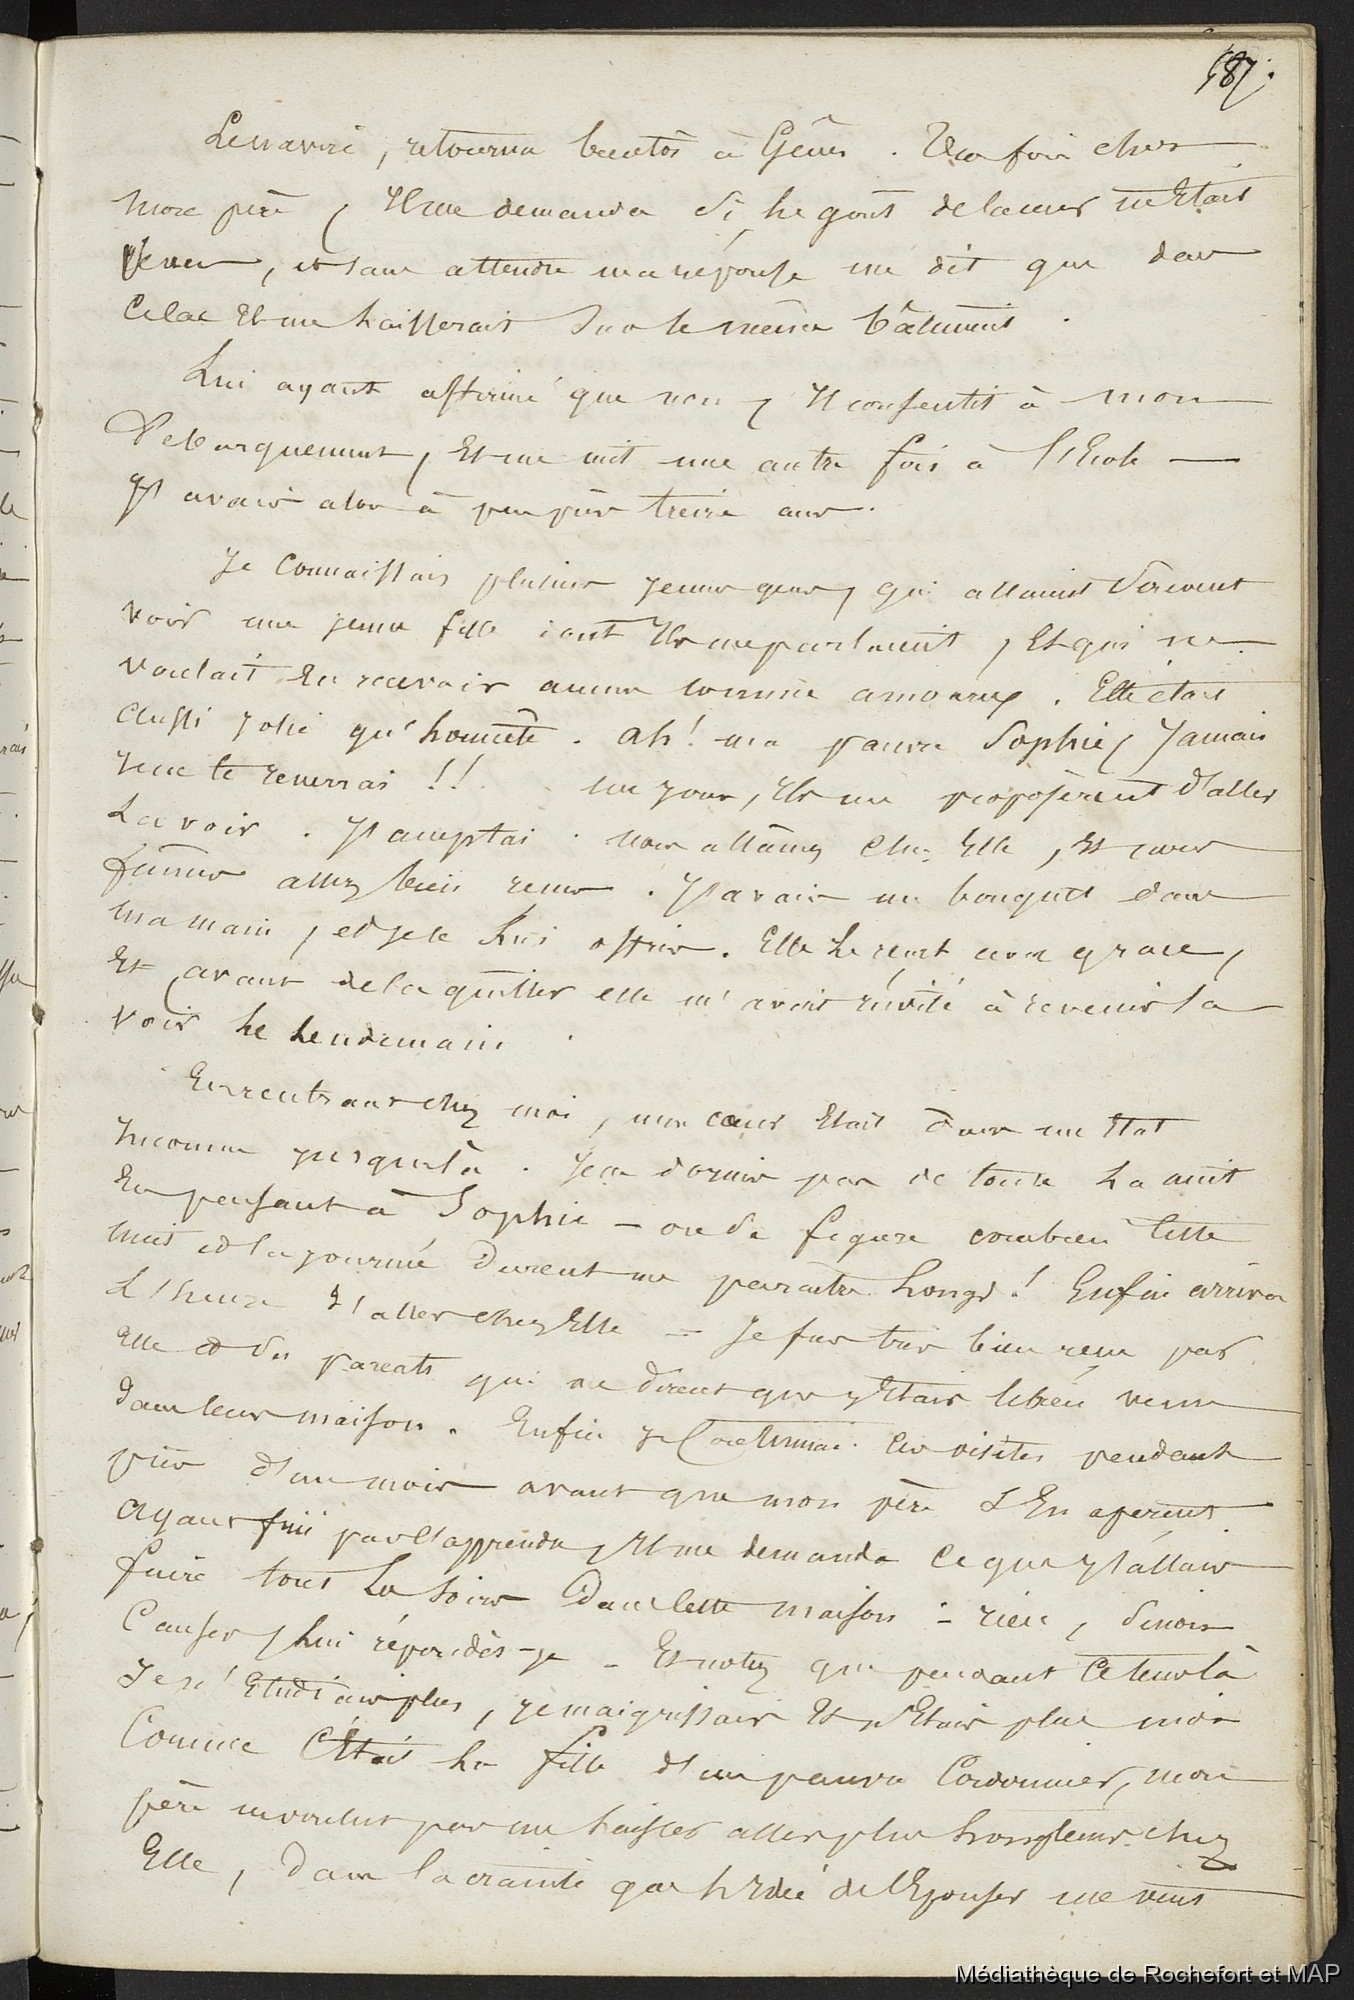 187.
Le navire, retourna bientôt à Gênes. Une fois chez
mon père, Il me demanda si, le goût de la mer m'Etait
venu, et sans attendre ma réponse me dit que dans
Cela Il me laisserait sur le même bâtiment.
Lui ayant affirmé que non, Il consentit à mon
Debarquement, Et me mit une autre fois à l'Ecole —
J'avais alor à peu près treize ans.
Je Connaissais plusieur jeunes gens, qui allaient souvent
voir une jeune fille dont Ils me parlaient, Et qui ne
voulait En recevoir aucun comme amoureux. Elle était
aussi jolie qu'honnête. Ah! ma pauvre Sophie, Jamais
Je ne te reverrai!! Un jour, Ils me proposèrent d'aller
La voir. J'acceptai. nous allâmes chez Elle, Et nous
fûmes assez bien reçus. J'avais un bouquet dans
ma main, et je le lui offris. Elle le reçut avec grace,
Et avant de la quitter elle m'avait invité à revenir la
voir le lendemain.
En rentrant chez moi, mon cœur Etait dans un Etat
Inconnu jusque là. Je ne dormis pas de toute La nuit
En pensant à Sophie — on se figure combien cette
nuit et la journée Durent me paraître Longs! Enfin arriva
L'heure d'aller chez Elle — Je fus très bien reçu par
Elle et ses parents qui me dirent que j'Etais le bien venu
Dans leur maison. Enfin je Continuai ces visites pendant
près d'un mois avant que mon père s'En aperçut
Ayant fini par l'apprendre, Il me demanda ce que j'allais
faire tous les soirs Dans cette maison — rien, sinon
Causer, lui répondis-je — Et notez que pendant ce temps là
Je n'Etudiais plus, je maigrissais Et n'Etais plus moi
Comme C'Etait la fille d'un pauvre Cordonnier, mon
père ne voulut pas me laisser aller plus longtems chez
Elle, Dans la crainte que l'Idée de l'Epouser me vint
Médiathèque de Rochefort et MAP